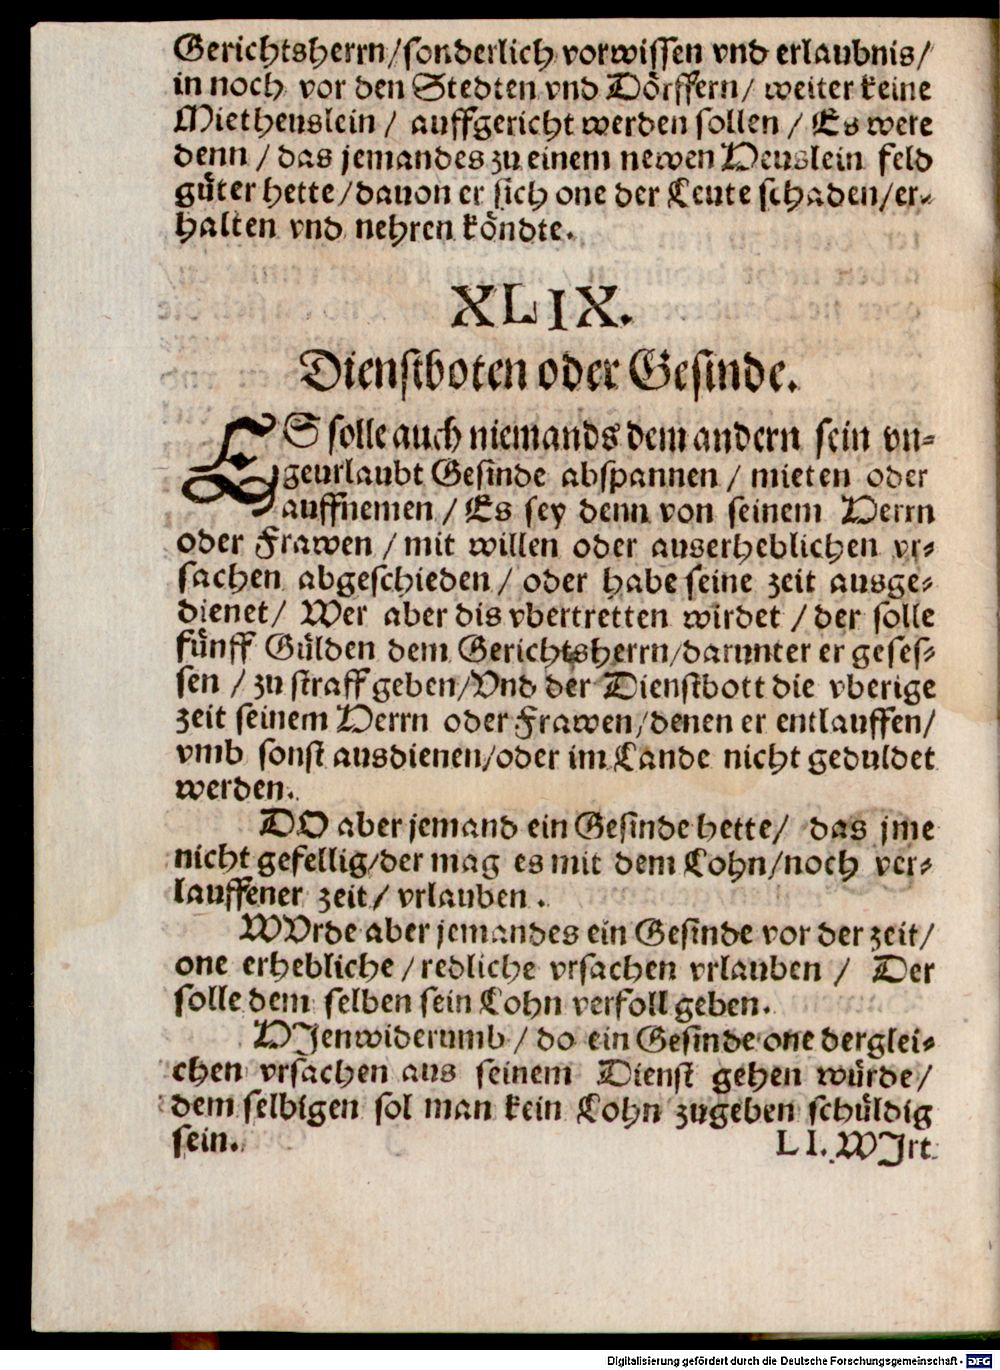 Gerichtsherrn/sonderlich vorwissen vnd erlaubnis/
in noch vor den Stedten vnd Dörffern/ weiter keine
Mietheuslein / auffgericht werden sollen / Es were
denn / das jemandes zu einem newen Heuslein feld
güter hette/dauon er sich one der Leute schaden/er-
halten vnd nehren köndte.
XLIX.
Dienstboten oder Gesinde.
ES solle auch niemands dem andern sein vn-
geurlaubt Gesinde abspannen / mieten oder
auffnemen / Es sey denn von seinem Herrn
oder Frawen / mit willen oder auserheblichen vr-
sachen abgeschieden / oder habe seine zeit ausge-
dienet/ Wer aber dis vbertretten wirdet / der solle
fünff Gülden dem Gerichtsherrn/darunter er geses-
sen / zu straff geben/Vnd der Dienstbott die vberige
zeit seinem Herrn oder Frawen/denen er entlauffen/
vmb sonst ausdienen/oder im Lande nicht geduldet
werden.
DO aber jemand ein Gesinde hette/ das jme
nicht gefellig/der mag es mit dem Lohn/noch ver-
lauffener zeit/ vrlauben.
WVrde aber jemandes ein Gesinde vor der zeit/
one erhebliche / redliche vrsachen vrlauben / Der
solle dem selben sein Lohn verfoll geben.
HJenwiderumb / do ein Gesinde one derglei-
chen vrsachen aus seinem Dienst gehen würde/
dem selbigen sol man kein Lohn zugeben schüldig
sein. LI. WJrt
Digitalisierung gefördert durch die Deutsche Forschungsgemeinschaft - DFG